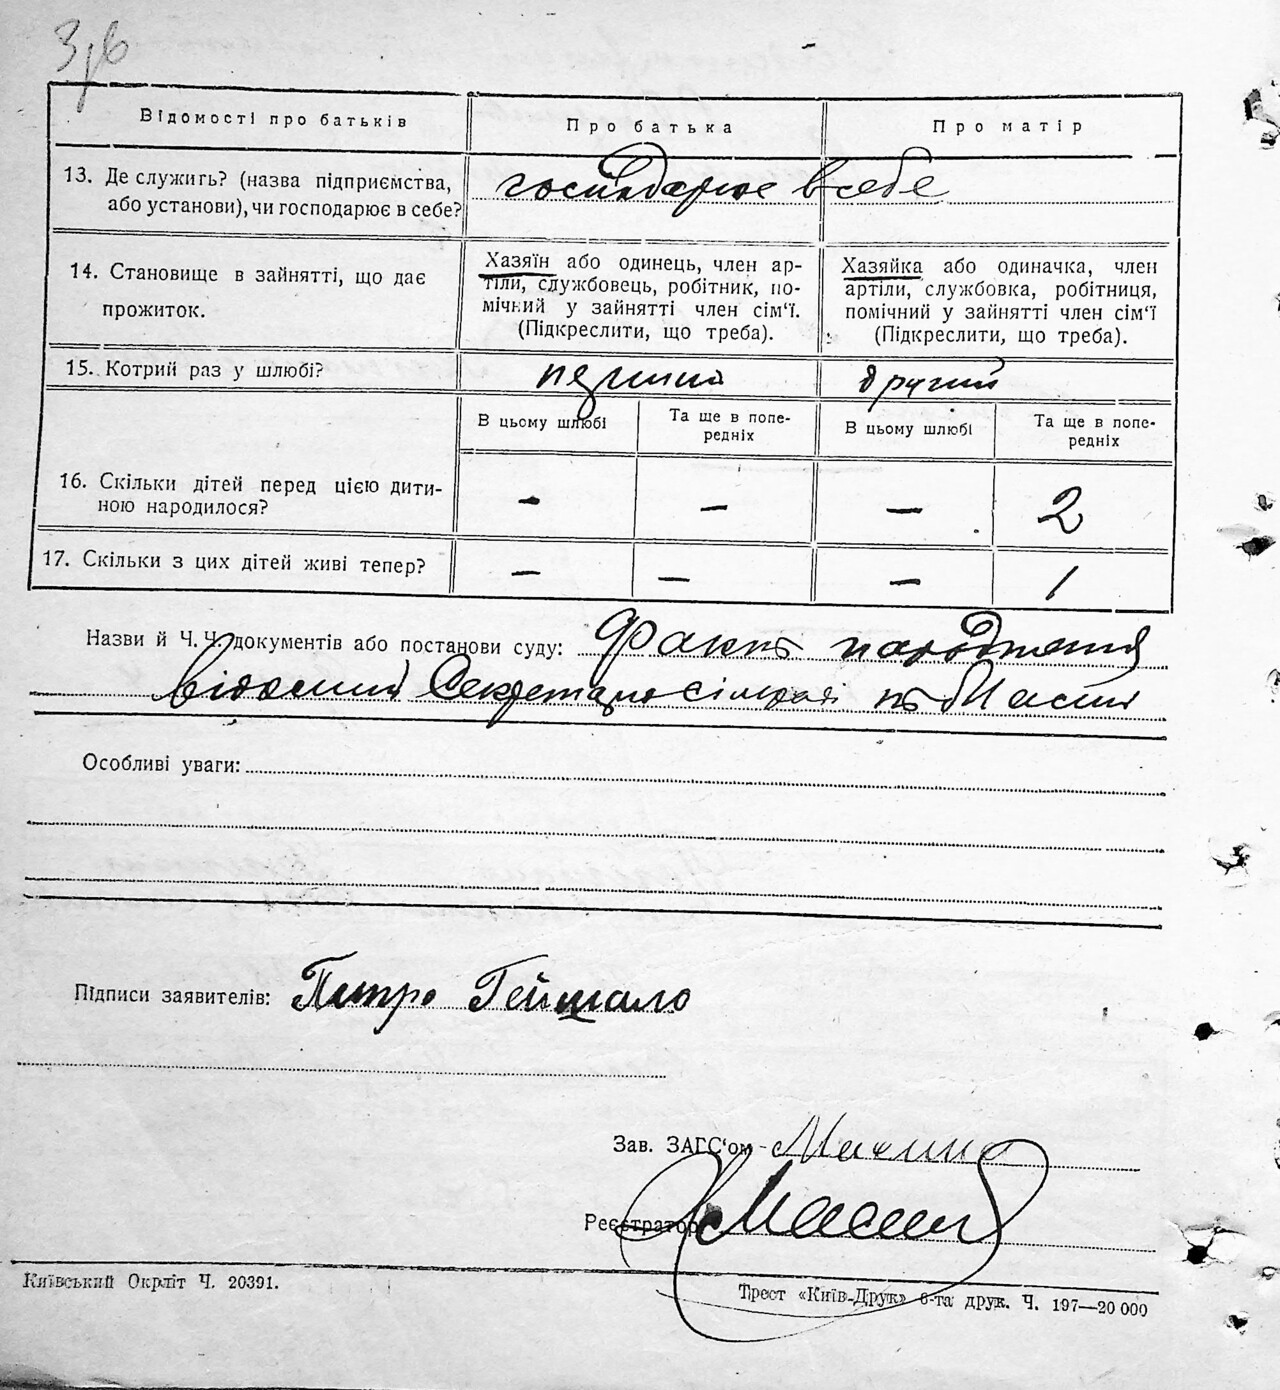 3/6
Відомості про батьків
Про батька
Про матір
13. Де служить? (назва підприємства, або установи), чи господарює в себе?
господарює в себе
14. Становище в зайнятті, що дає прожиток.
Хазяїн або одинець, член ар-
тіли, службовець, робітник, по-
мічний у зайнятті член сім'ї.
(Підкреслити, що треба).
Хазяйка або одиначка, член
артіли, службовка, робітниця,
помічний у зайнятті член сім'ї
(Підкреслити, що треба).
15. Котрий раз у шлюбі?
перший
другий
В цьому шлюбі
Та ще в попе-
редніх
В цьому шлюбі
Та ще в попе-
редніх
16. Скільки дітей перед цією дити-
ною народилося?
-
-
-
2
17. Скільки з цих дітей живі тепер?
-
-
-
1
Назви й Ч. Ч. документів або постанови суду: Факт народження
відомий Секретарю сільради
Особливі уваги:
Підписи заявителів: Петро Гейшало
Зав. ЗАГС'ом
Реєстратор
Київський Окрліт Ч. 20391.
Трест «Київ-Друк» 6-та друк. Ч. 197—20 000